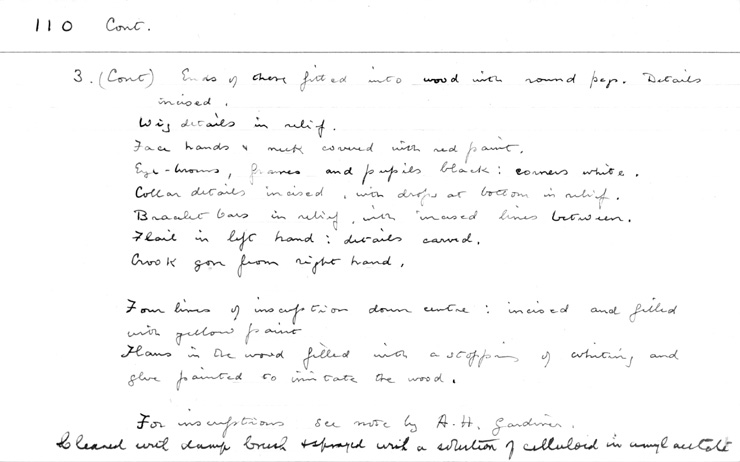 110 Cont.
3. (Cont) Ends of these fitted into wood with round pegs. Details
incised.
Wig details in relief.
Face hands & neck covered with red paint.
Eye-brows, frames and pupils black: corners white.
Collar details incised, with drops at bottom in relief.
Bracelet bars in relief, with incised lines between.
Flail in left hand: details carved.
Crook gone from right hand.
Four lines of inscription down centre: incised and filled
with yellow paint
Flaws in the wood filled with a stopping of whiting and
glue painted to imitate the wood.
For inscriptions see note by A.H. Gardiner.
Cleaned with damp brush & sprayed with a solution of celluloid in amyl acetate